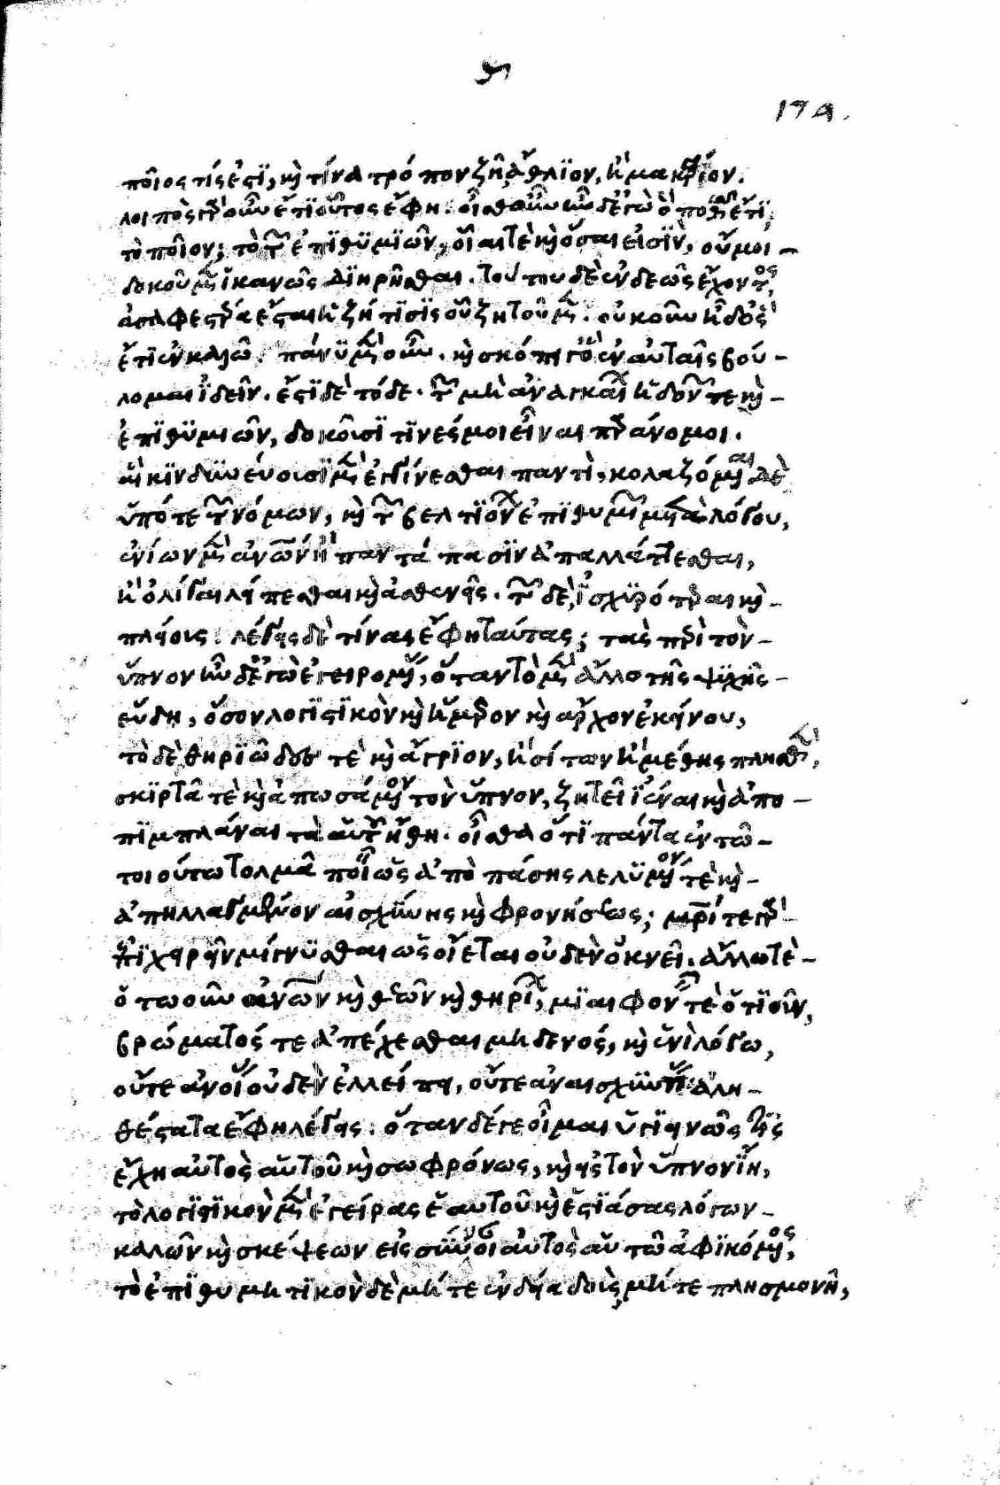 ϡ
174.
ποῖος τίς ἐστι, καὶ τίνα τρόπον ζῆ ἄθλιον, ἢ μακάριον.
λοιπὸς γὰρ οὖν ἔτι οὗτος ἔφη. οἶσθ' οὖν ἦν δ' ἐγὼ ὃ ποθῶ ἔτι;
τὸ ποῖον; τὸ τῶν ἐπιθυμιῶν, οἷαί τε καὶ ὅσαι εἰσὶν, οὔ μοι
δοκοῦμεν ἱκανῶς διῃρῆσθαι. τούτου δὲ ἐνδεῶς ἔχοντος,
ἀσαφεστέρα ἔσται ἡ ζήτησις οὗ ζητοῦμεν. οὐκοῦν ἦ δ' ὃς
ἔτι ἐν καλῶ. πάνυ μὲν οὖν. καὶ σκόπει γε ὃ ἐν αὐταῖς βού-
λομαι ἰδεῖν. ἔστι δὲ τόδε. τῶν μὴ ἀναγκαίων ἡδονῶν τε καὶ
ἐπιθυμιῶν, δοκοῦσί τινές μοι εἶναι παράνομοι.
αἳ κινδυνεύουσι μὲν ἐγγίνεσθαι παντὶ, κολαζόμεναι δὲ
ὑπό τε τῶν νόμων, καὶ τῶν βελτιόνων ἐπιθυμιῶν μετὰ λόγου,
ἐνίων μὲν ἀνθρώπων ἢ παντάπασιν ἀπαλλάττεσθαι,
ἢ ὀλίγαι λείπεσθαι καὶ ἀσθενεῖς. τῶν δὲ, ἰσχυρότεραι καὶ
πλείους. λέγεις δὲ τίνας ἔφη ταύτας; τὰς περὶ τὸν
ὕπνον ἦν δ' ἐγὼ ἐγειρομένας, ὅταν τὸ μὲν ἄλλο τῆς ψυχῆς
εὕδη, ὅσον λογιστικὸν καὶ ἥμερον καὶ ἄρχον ἐκείνου,
τὸ δὲ θηριῶδές τε καὶ ἄγριον, ἢ σίτων ἢ μέθης πλησθὲν,
σκιρτᾶ τε καὶ ἀπωσάμενον τὸν ὕπνον, ζητεῖ ἰέναι καὶ ἀπο
πιμπλάναι τὰ αὑτοῦ ἤθη. οἶσθα ὅτι πάντα ἐν τῶ
τοιούτω τολμᾶ ποιεῖν ὡς ἀπὸ πάσης λελυμένον τε καὶ
ἀπηλλαγμένον αἰσχύνης καὶ φρονήσεως; μητρί τε γὰρ
ἐπιχειρεῖν μίγνυσθαι ὡς οἴεται οὐδὲν ὀκνεῖ. ἄλλω τὲ
ὁτωοῦν ἀνθρώπων καὶ θεῶν καὶ θηρίων, μιαιφονεῖν τὲ ὁτιοῦν,
βρώματός τε ἀπέχεσθαι μηδενός, καὶ ἑνὶ λόγω,
οὔτε ἀνοίας οὐδὲν ἐλλείπει, οὔτε ἀναισχυντίας. ἀλη-
θέστατα ἔφη λέγεις. ὅταν δέ γε οἶμαι ὑγιεινῶς τις
ἔχη αὐτὸς αὑτοῦ καὶ σωφρόνως, καὶ εἰς τὸν ὕπνον ἴη,
τὸ λογιστικὸν μὲν ἐγείρας ἑαυτοῦ καὶ ἑστιάσας λόγων
καλῶν καὶ σκέψεων εἰς σύννοιαν αὐτὸς αὑτῶ ἀφικόμενος,
τὸ ἐπιθυμητικὸν δὲ μήτε ἐνδεία δοὺς, μήτε πλησμονῆ,